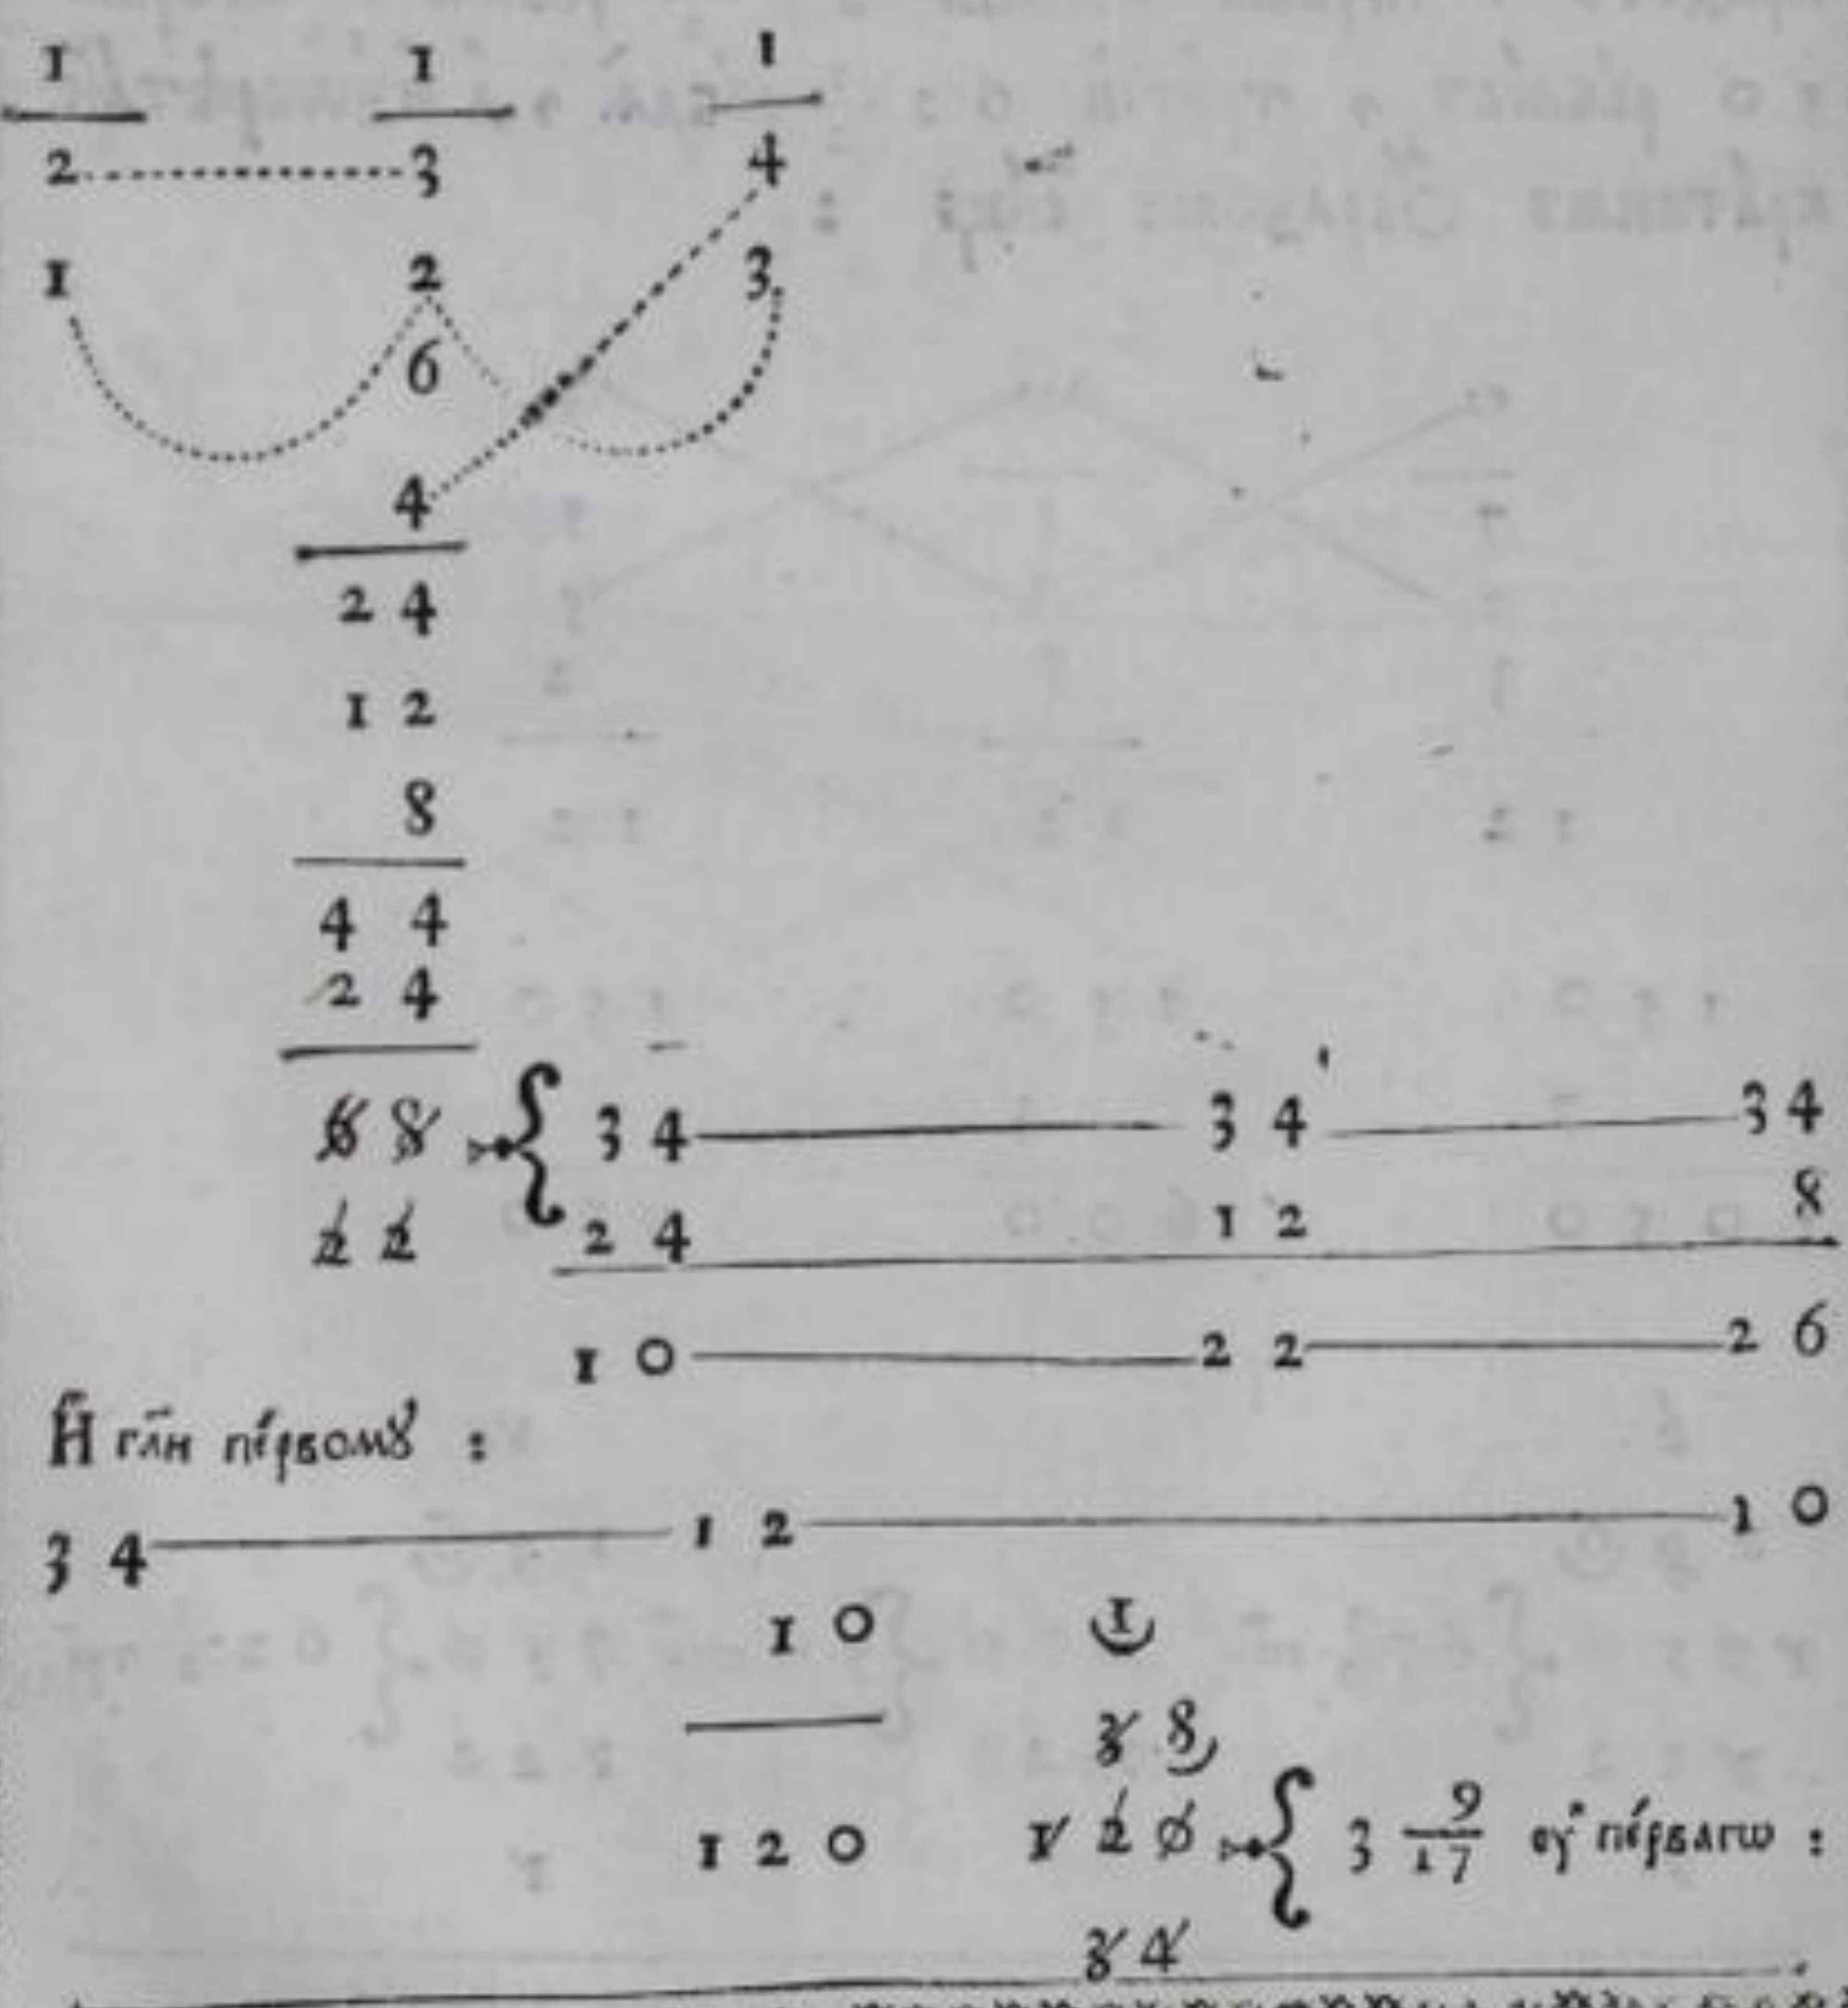 1 1 1
2 3 4
1 2 3
6
4
2 4
1 2
8
4 4
2 4
6 8 { 3 4 3 4 3 4
2 2 2 4 1 2 8
1 0 2 2 2 6
И҆ гл҃и пе́рвомꙋ :
3 4 1 2 1 0
1 0 (1)
3 8
1 2 0 1 2 0 { 3 9/17 ᲂу҆ пе́рвагѡ :
3 4